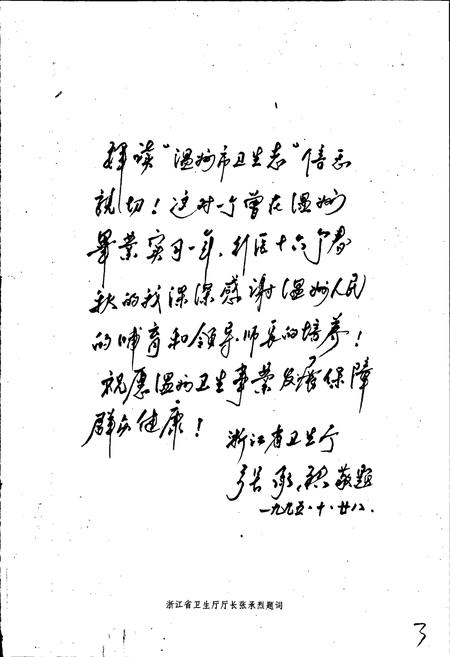 拜读“温州市卫生志”倍感
亲切！这对一个曾在温州
毕业实习一年、行医十六个春
秋的我深深感谢温州人民
的哺育和领导、师长的培养！
祝愿温州卫生事业发展保障
群众健康！
浙江省卫生厅
张承烈敬题
一九九五·十·廿八.
浙江省卫生厅厅长张承烈题词
3